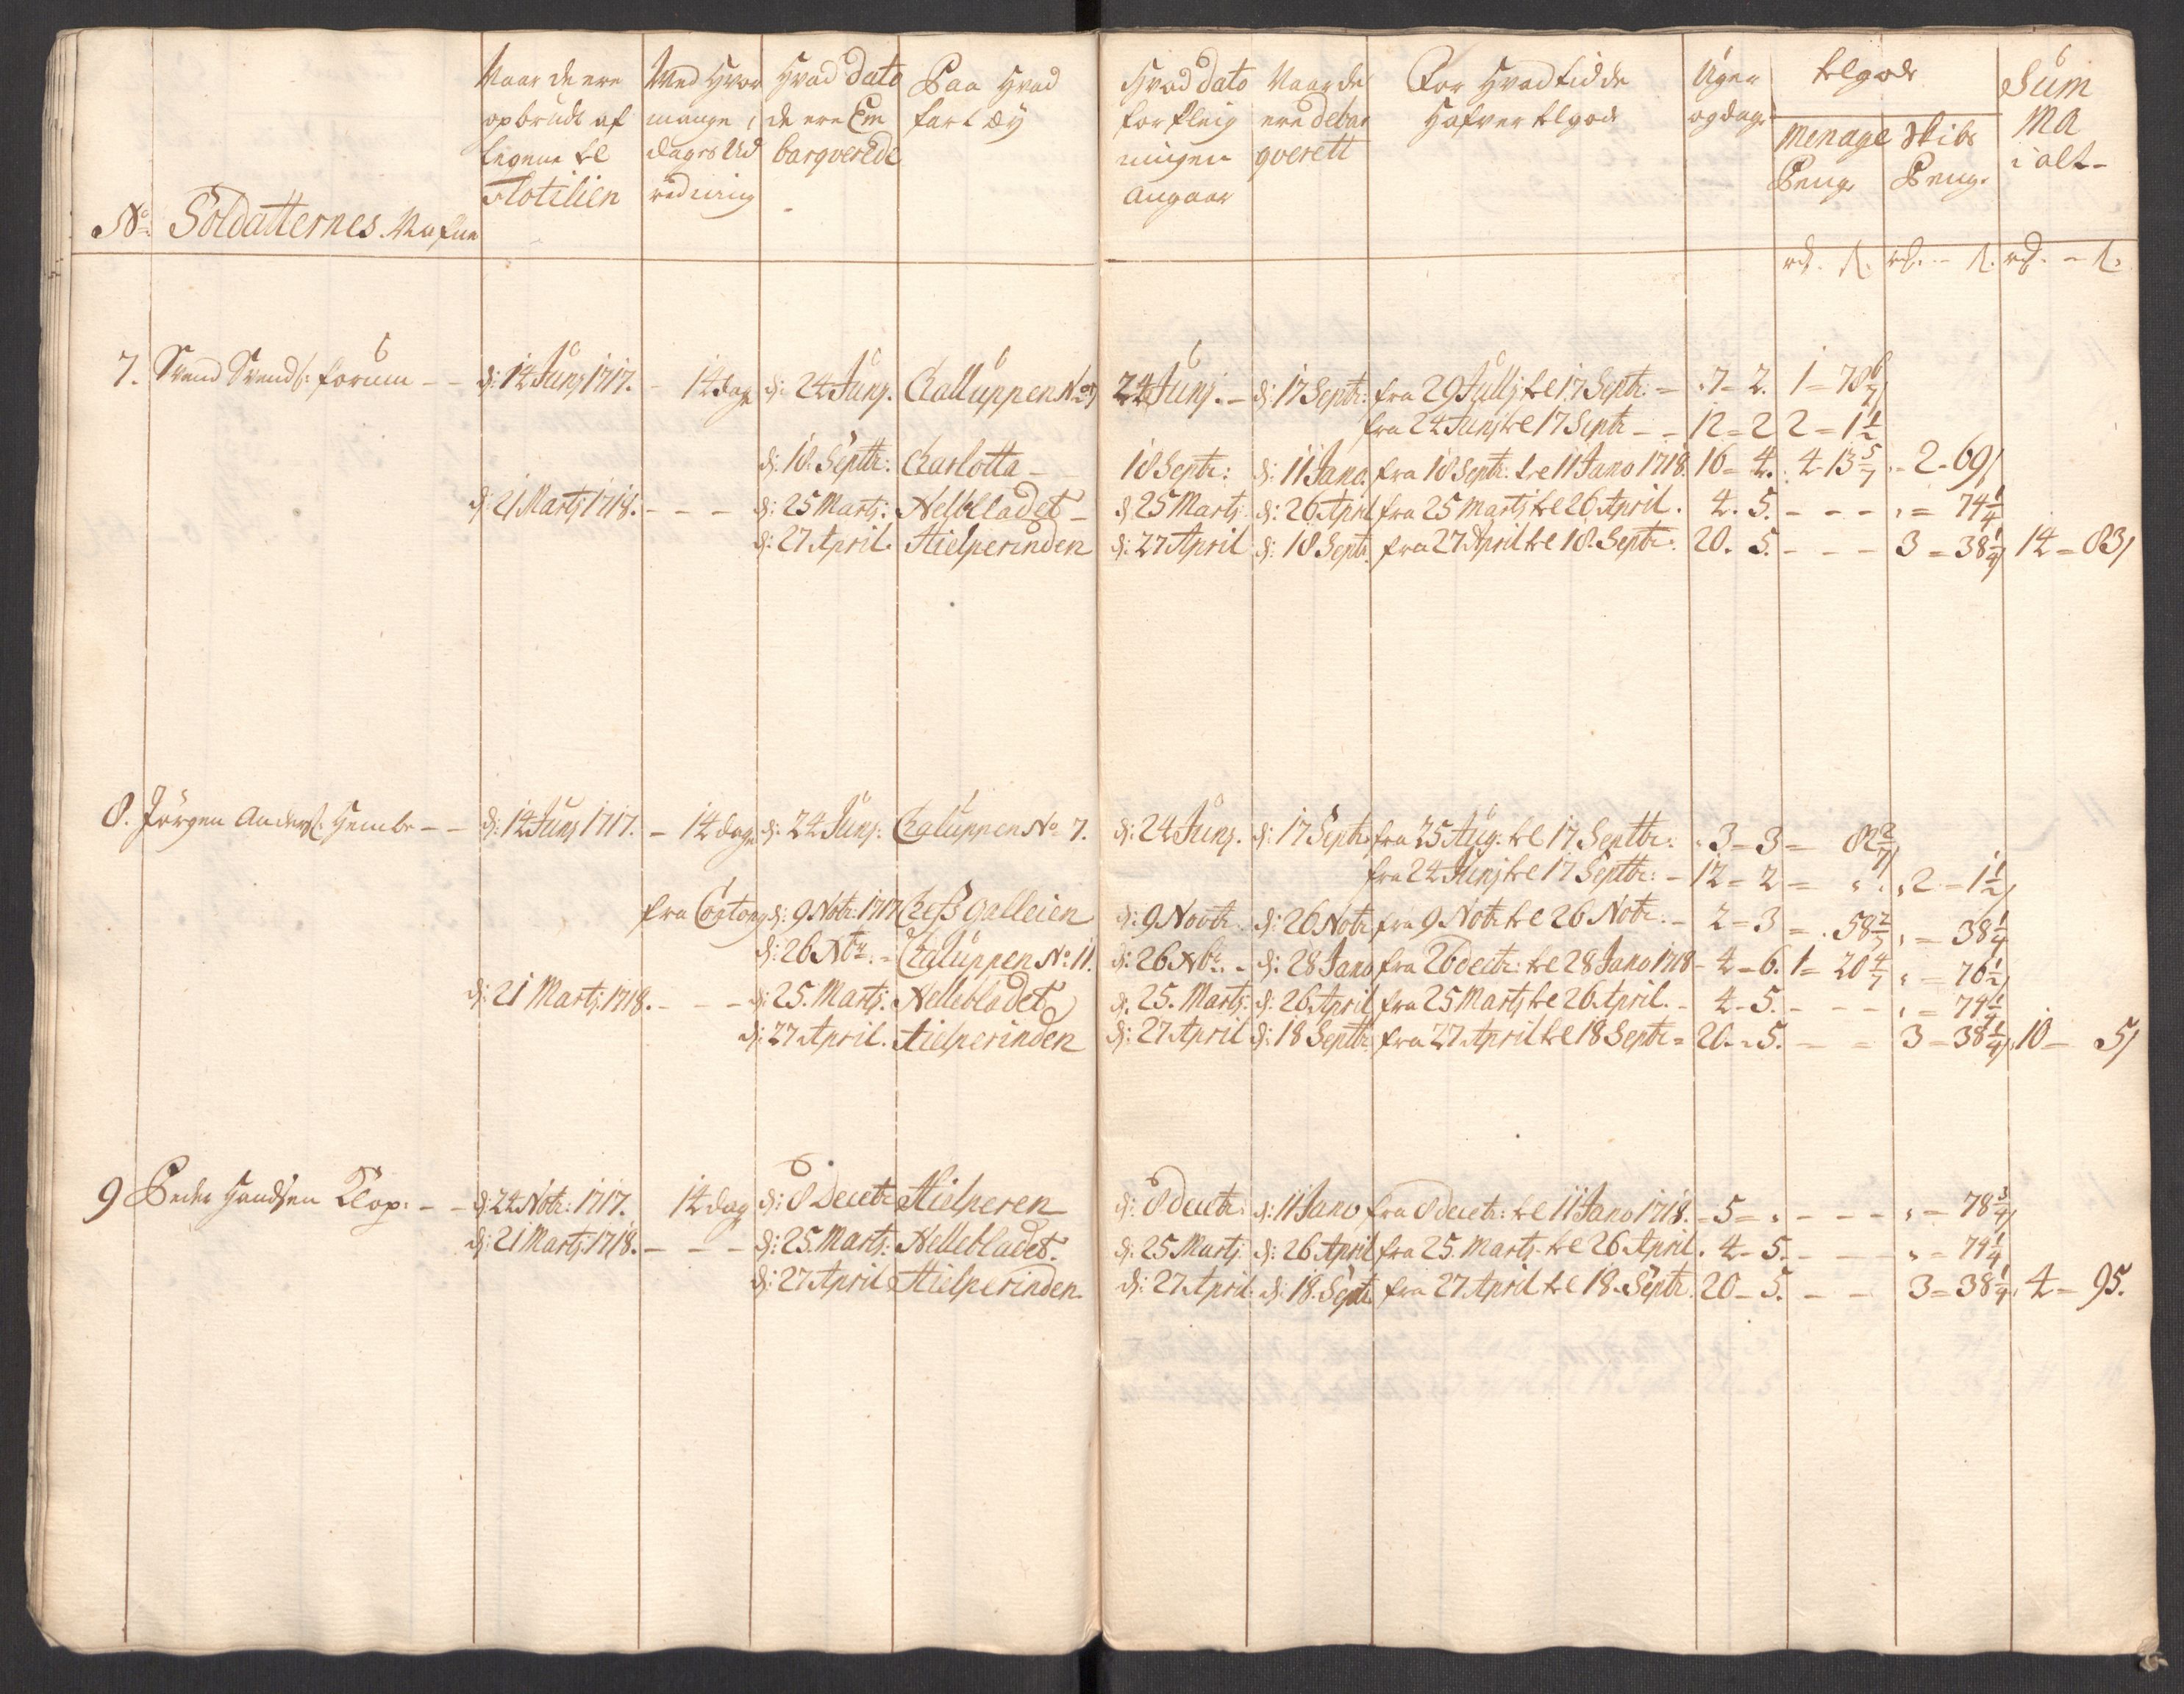 No: Soldatternes Nafne
Naar de ere opbrudt af legene til Flotilien
Med Hvor mange dages Ud redning
Hvad dato de ere Em barqverede
Paa Hvad fartøy
Hvad dato forpleigningen angaar
Naar de ere debarqverett
For Hvad tid de Hafver tilgode
Uger og dage
tilgode
Menage Penge
Skibs Penge
Summa i alt
rd. s. rd. - s. rd. - s.
7. Svend Svends: forum - - d: 14 Junj 1717. - 14 dage d: 24 Junj. Challuppen No 24 Junj. - d: 17 Septr: fra 29 Jullj til 17 Septr: - 7 - 2. 1 = 78 6/7
fra 24 Junj til 17 Septr - - 12 = 2 2 = 1 1/2
d: 18. Septtr: Charlotta - 18 Septr: d: 11 Jano. fra 18 Septr: til 11 Jano 1718. 16 = 4. 4 - 13 5/7 - 2 - 69
d: 21 Martj 1718. - - - d: 25 Martj: Nelbladet - d 25 Martj d: 26 April fra 25 Martj til 26 April. 4. 5. - - - = 74 1/4
d: 27 April. Hielperinden d: 27 April d: 18 Septr. fra 27 April til 18. Septr: 20. 5. - - - 3 = 38 1/4 14 = 83
8. Jørgen Anders: Hembr - - d: 14 Junj 1717. - 14 dage d: 24 Junj: Chaluppen No 7. d: 24 Junj. d: 17 Septr. fra 25 Aug: til 17 Septtr: 3 - 3 = 82 2/7
fra 24 Junj til 17 Septtr: - 12 = 2 = 2 = 1 1/2
fra d: 9 Notr: 1717 Chefs Galleien d: 9 Novtr. d: 26 Notr fra 9 Notr til 26 Notr: - 2 = 3 = 58 2/7 = 38 1/4
d: 26 Xbr: - Chaluppen No: 11. d: 26 Xbr. - d: 28 Jano fra 26 dectr: til 28 Jano 1718 - 4 - 6. 1 = 20 4/7 = 76 1/2
d: 21 Martj: 1718. - - - d: 25. Martj: Nellebladet d. 25. Martj: d: 26 April fra 25 Martj til 26. April. - 4 - 5. - - - = 74 1/4
d: 27 April. Hielperinden d: 27 April d: 18 Septtr. fra 27 April til 18 Septr = 20. - 5. - = 3 = 38 1/4 10 - 5
9 Peder Handsen Klop: - - d: 24 Notr: 1717. 14 dag d: 8 Decetr Hielperen d: 8 dectr: d: 11 Jano fra 8 decetr: til 11 Jano 1718. = 5 = - - - = 78 3/4
d: 21 Martj 1718. - - - d: 25. Martj: Nellebladet. d: 25 Martj: d: 26 April fra 25. Martj: til 26 April. 4 - 5. - - = 74 1/4
d: 27 April Hielperinden. d: 27 April. d: 18. Septr fra 27 April til 18. Septr. 20 - 5. - - 3 = 38 1/4 4 - 95.